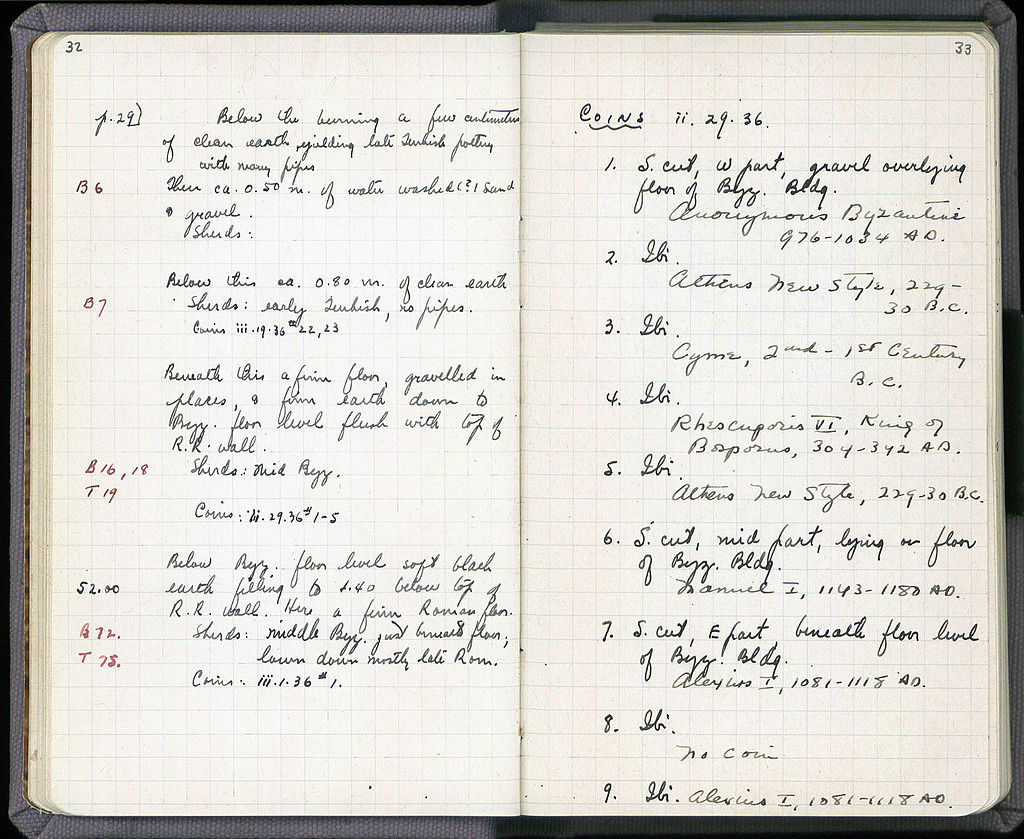 32
p. 29] Below the burning a few centimetres
of clean earth yielding late Turkish pottery
with many pipes
B 6 Then ca. 0.50 m. of water washed (?) sand
& gravel.
Sherds:
Below this ca. 0.80 m. of clean earth
B 7 Sherds: early Turkish, no pipes.
Coins iii.19.36 # 22, 23
Beneath this a firm floor, gravelled in
places, & firm earth down to
Byz. floor level flush with top of
R.R. wall.
B 16, 18 Sherds: mid Byz.
T 19
Coins: ii.29.36 # 1-5
Below Byz. floor level soft black
52.00 earth filling to 1.40 below top of
R.R. wall. Here a firm Roman floor.
B 72. Sherds: middle Byz. just beneath floor,
T 75. lower down mostly late Rom.
Coins: iii.1.36 # 1.
33
COINS ii. 29. 36.
1. S. cut, W part, gravel overlying
floor of Byz. Bldg.
Anonymous Byzantine
976-1034 AD.
2. Ibi.
Athens New Style, 229-
30 B.C.
3. Ibi.
Cyme, 2nd - 1st Century
B.C.
4. Ibi.
Rhescuporis VI, King of
Bosporus, 304-342 AD.
5. Ibi.
Athens New Style, 229-30 B.C.
6. S. cut, mid part, lying on floor
of Byz. Bldg.
Manuel I, 1143-1180 AD.
7. S. cut, E part, beneath floor level
of Byz. Bldg.
Alexius I, 1081-1118 AD.
8. Ibi.
No coin
9. Ibi. Alexius I, 1081-1118 AD.